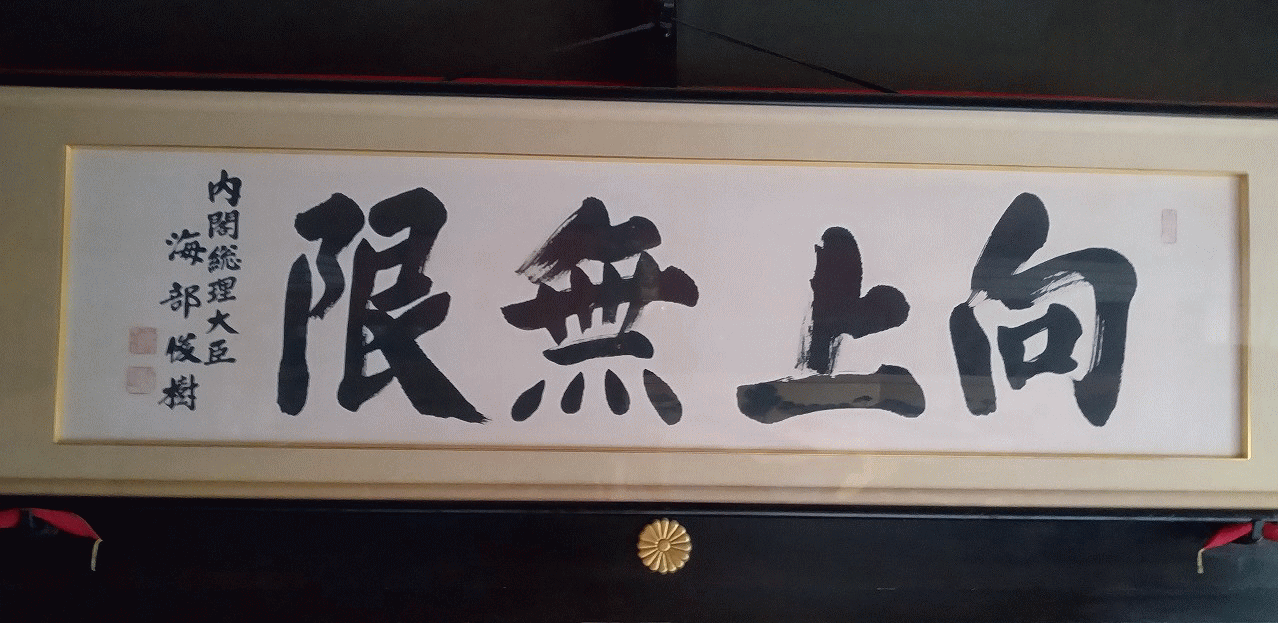 向上無限
内閣総理大臣
海部俊樹